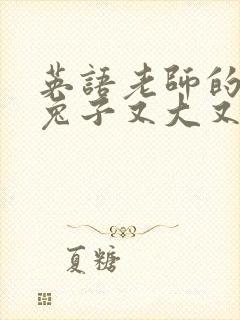 英語老師的
兔子又大又
夏糖